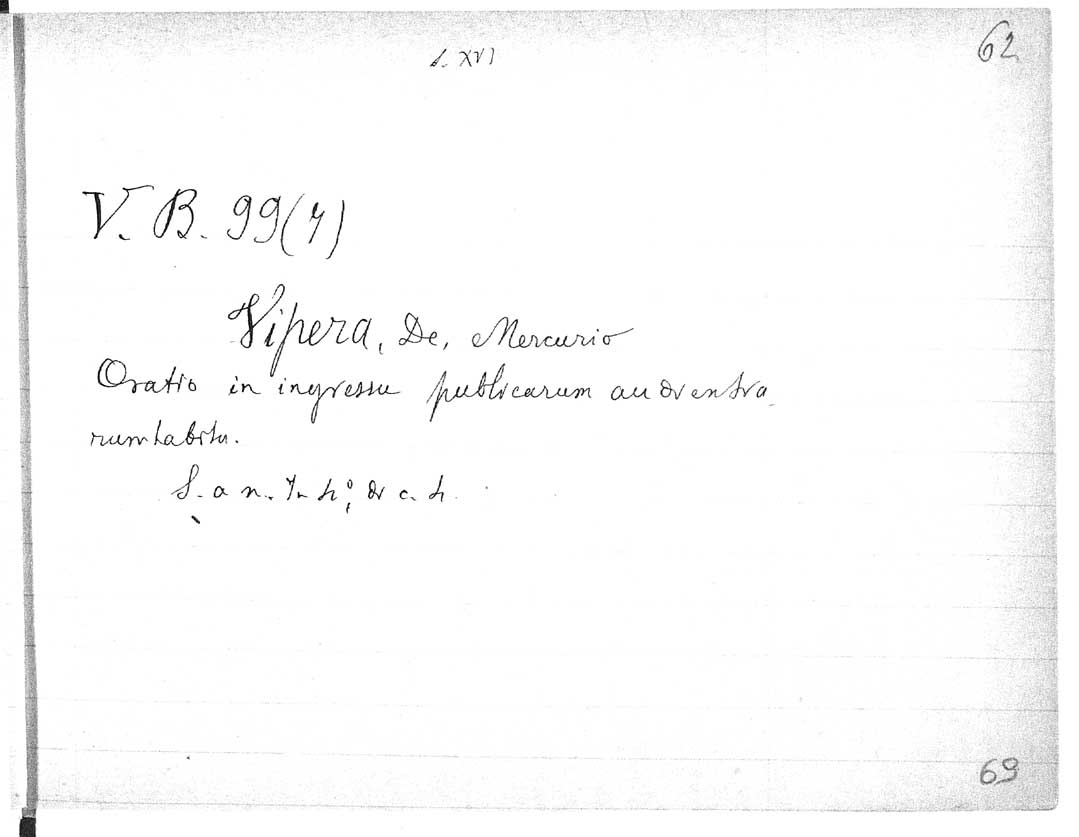 s. XVI
62
V. B. 99(7)
Vipera, De, Mercurio
Oratio in ingressu publicarum audientia-
rum habita.
S. a n. In 4°; di c. 4.
69